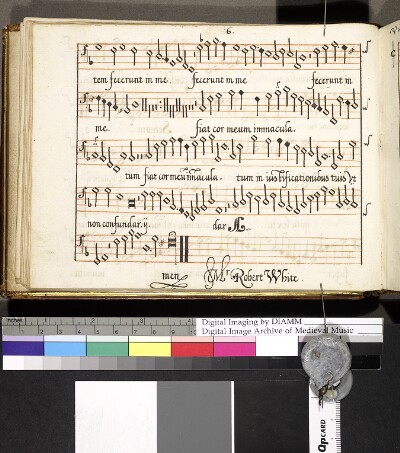 6.
tem fecerunt in me. fecerunt in me fecerunt in
me. fiat cor meum immacula.
tum fiat cor meū īmacula. tum in iustificationibus tuis Vt
non confundar. ij. dar A.
men Mr. Robert White.
inches
Digital Imaging by DIAMM
Digital Image Archive of Medieval Music
QPCARD